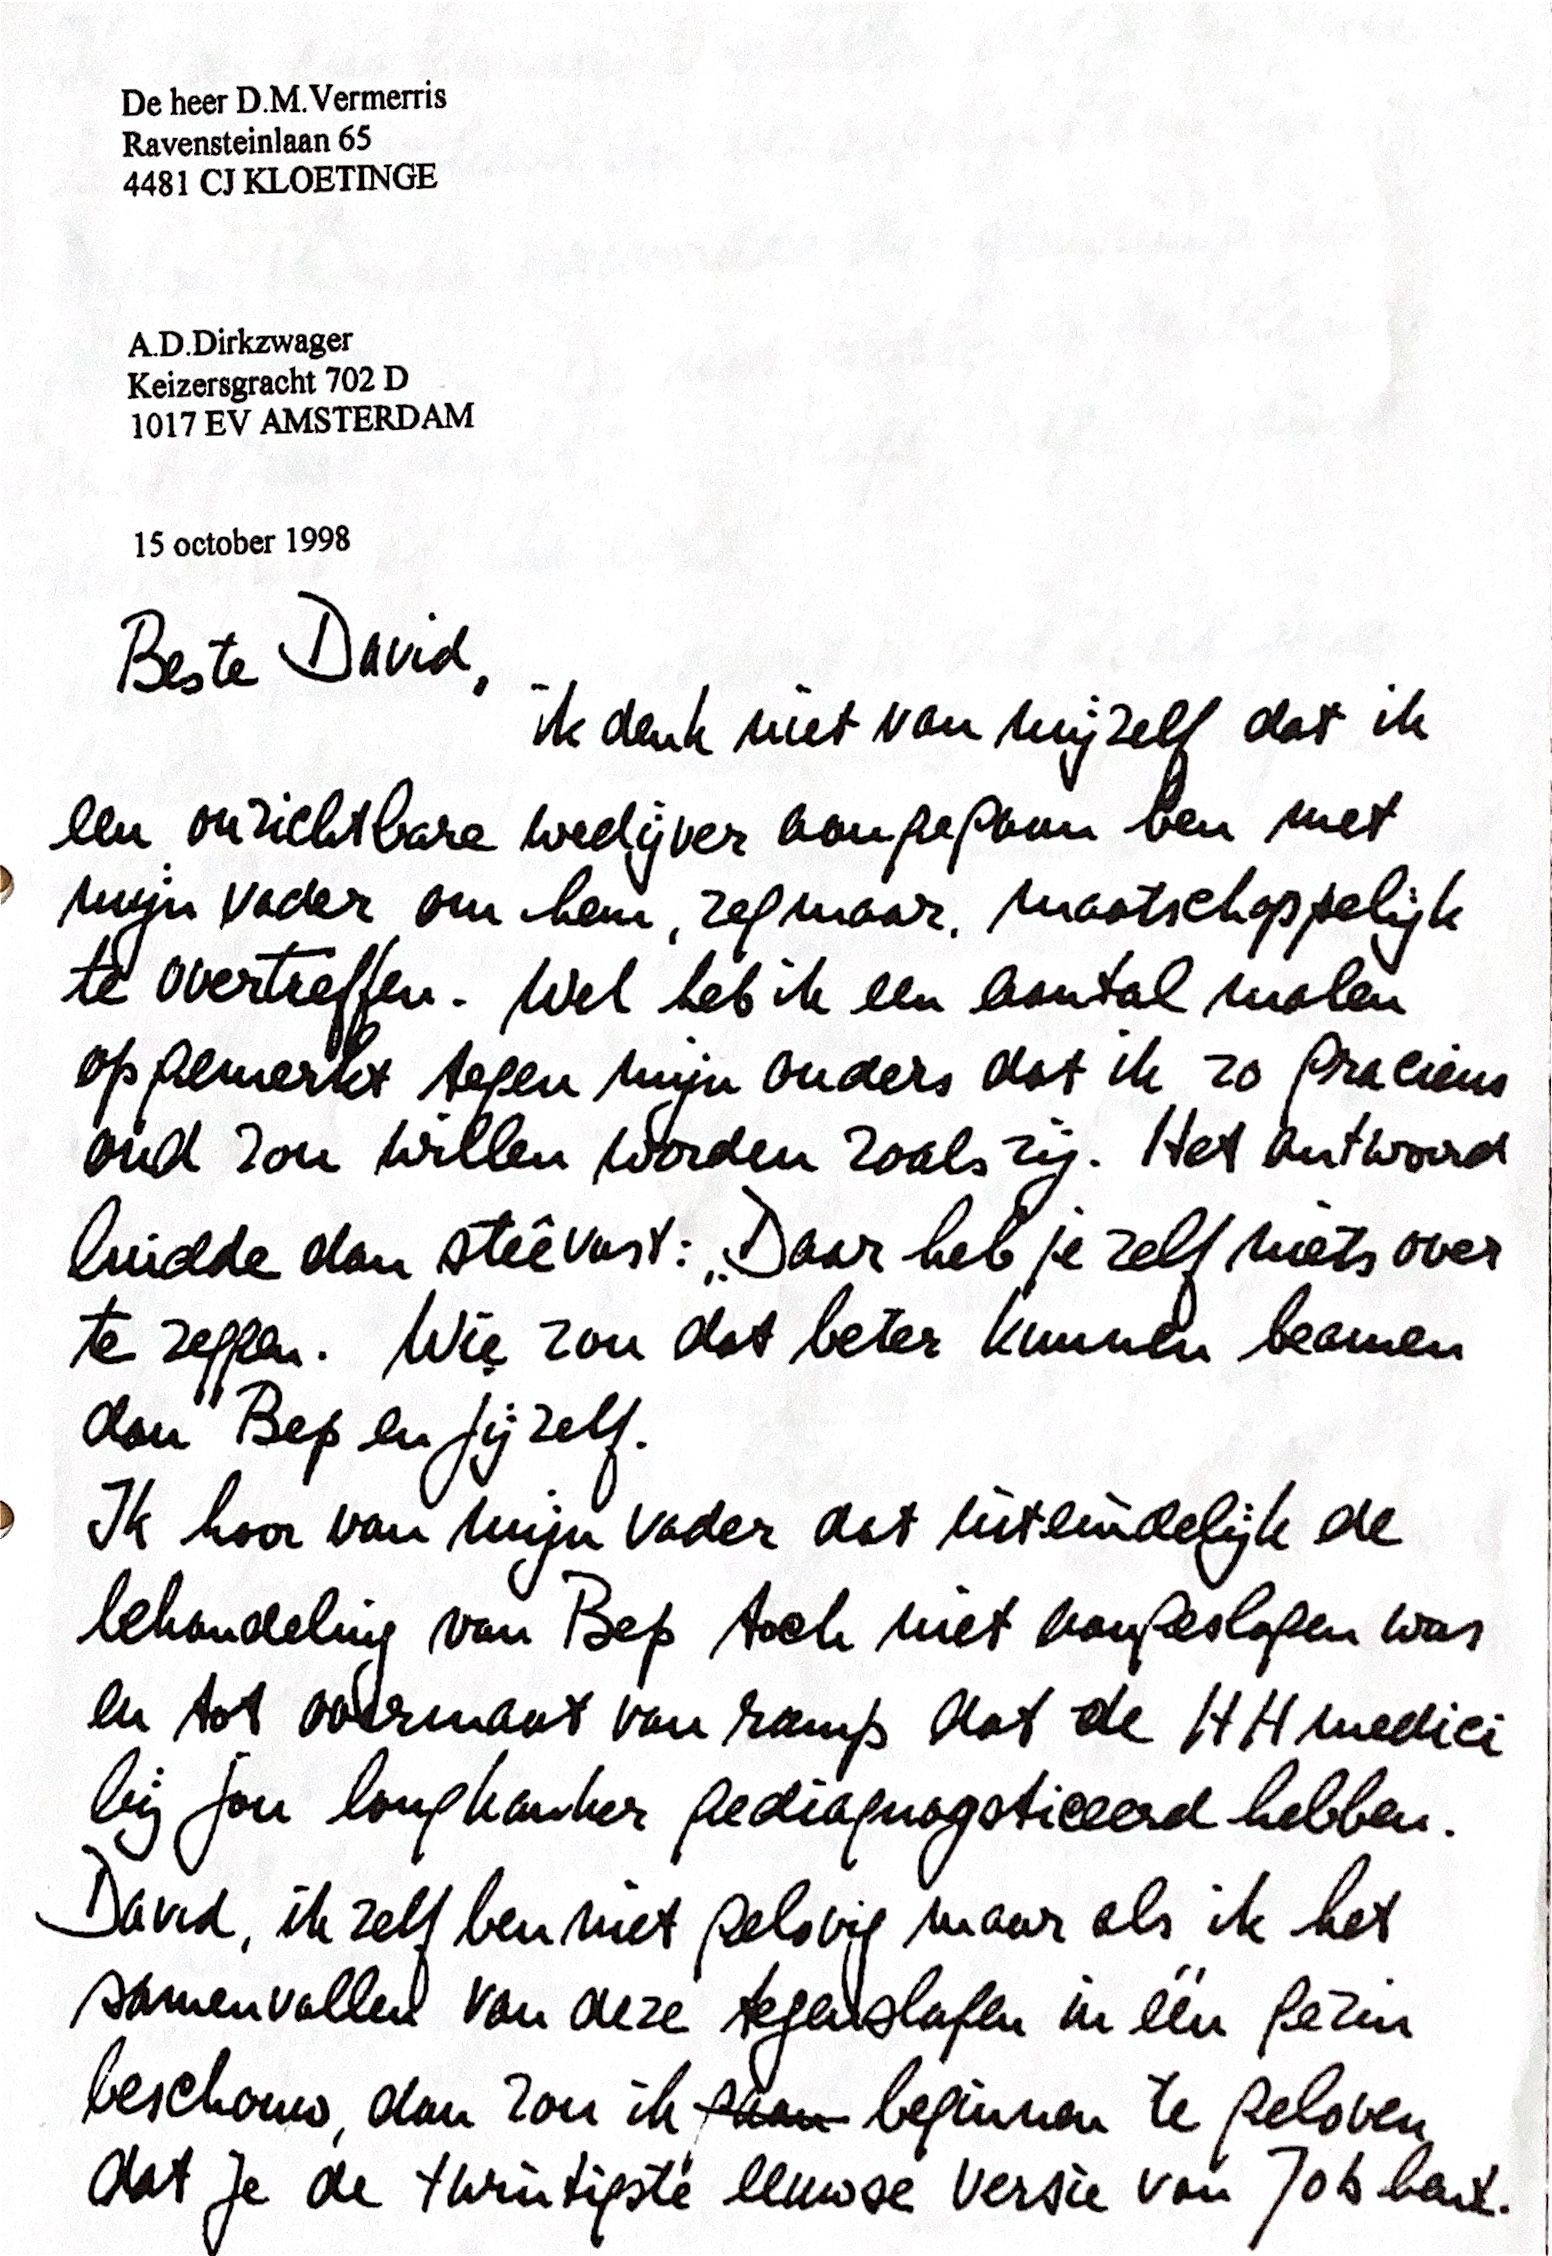 De heer D.M.Vermerris
Ravensteinlaan 65
4481 CJ KLOETINGE
A.D.Dirkzwager
Keizersgracht 702 D
1017 EV AMSTERDAM
15 october 1998
Beste David,
ik denk niet van mijzelf dat ik
een onzichtbare wedijver aangegaan ben met
mijn vader om hem, zeg maar, maatschappelijk
te overtreffen. Wel heb ik een aantal malen
opgemerkt tegen mijn ouders dat ik zo gracieus
oud zou willen worden zoals zij. Het antwoord
luidde dan steêvast: „Daar heb je zelf niets over
te zeggen. Wie zou dat beter kunnen beamen
dan" Bep en jijzelf.
Ik hoor van mijn vader dat uiteindelijk de
behandeling van Bep toch niet aangeslagen was
en tot overmaat van ramp dat de HH medici
bij jou longkanker gediagnogsticeerd hebben.
David, ik zelf ben niet gelovig maar als ik het
samenvallen van deze tegenslagen in één gezin
beschouw, dan zou ik gaan beginnen te geloven
dat je de twintigste eeuwse versie van Job bent.